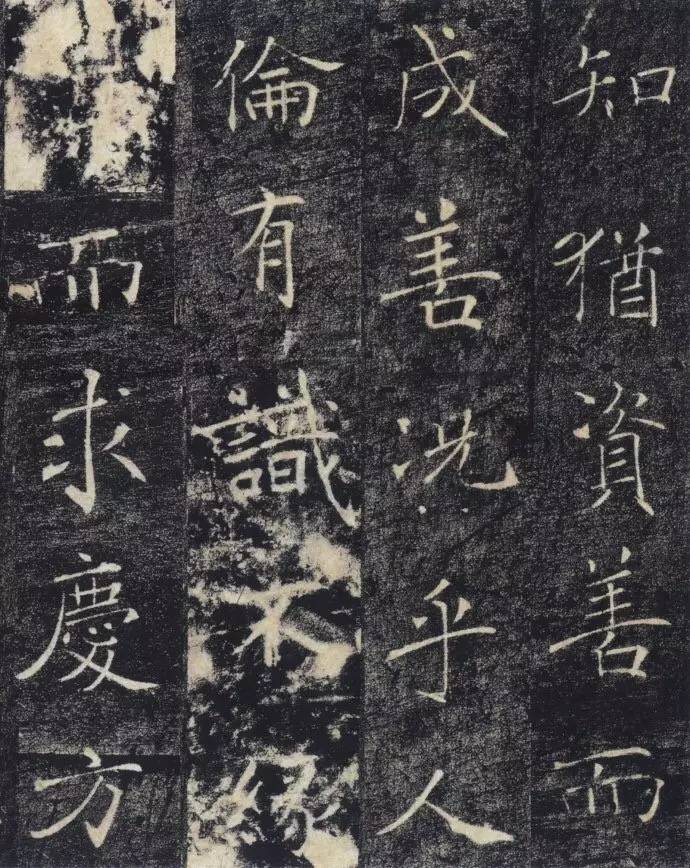 知猶資善而
成善況乎人
倫有識不緣
而求慶方